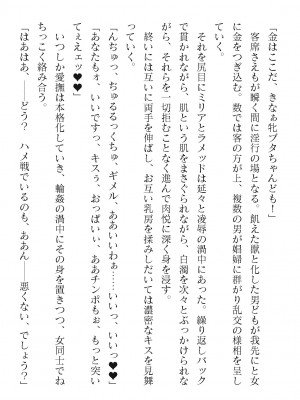 「金はここだ、きな牝ブタちゃんども！」
　客席さえもが瞬く間に淫行の場となる。飢えた獣と化した男どもが我先に女
に金をつぎ込む。数では客の方が上、複数の男が娼婦に群がり乱交の様相を呈し
ていく。
　それを尻目にミリアとラメッドは延々と凌辱の渦中にあった。繰り返しバック
で貫かれながら、肌という肌をまさぐられながら、白濁を次々とぶっかけられな
がら、それらを一切拒むことなく進んで肉悦に深く身を浸す。
　終いには互いに両手を伸ばし、お互い乳房を揉みしだいては濃密なキスを見舞
っていく。
「んちゅっ、ちゅるるっくちゅ、ギメル、ああいいわぁ……いいっ、いいっ♥」
「あなたもォ、いいですっ、キスぅ、おっぱいぃ、ああチンポもぉ、もっと突い
てぇえェッ♥♥」
　いつしか愛撫は本格化していき、輪姦の渦中にその身を置きつつ、女同士でね
ちっこく絡み合う。
「はあはあ、――どう？　ハメ戦でいるのも、ああん――悪くない、でしょう？」